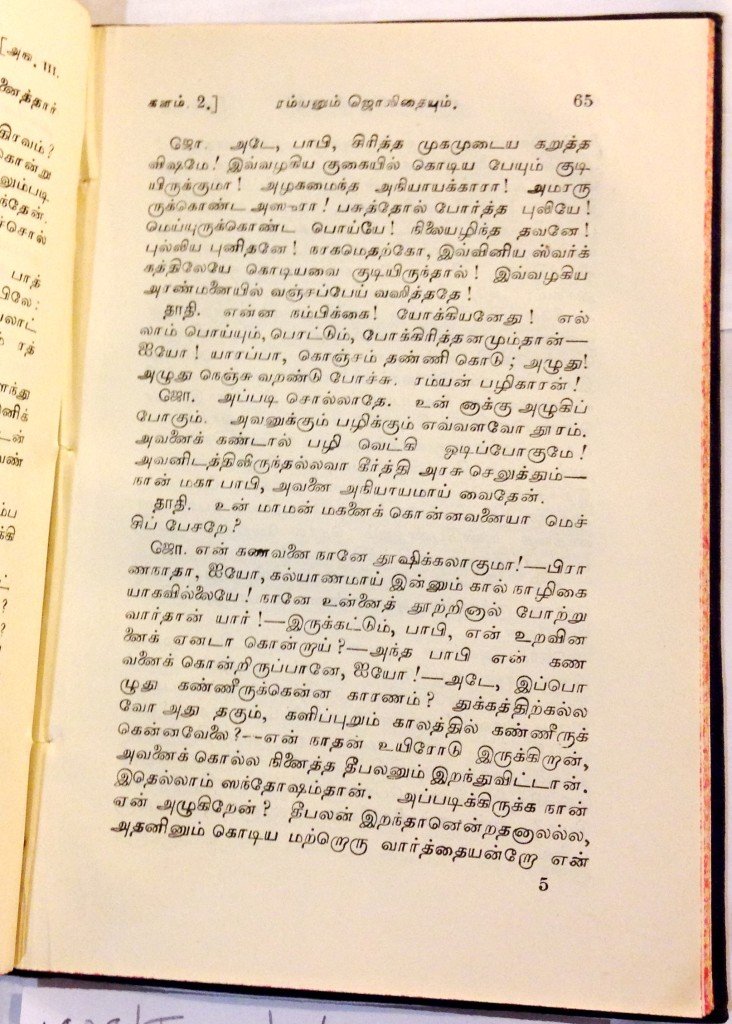 [அங். III.
ணைத்தார்
கிரவம் ?
கொன்று
லும்படி
ந்தேன்.
ச்சொல்
பாத்
பிலே :
பலாட்
ம் ரத்
ளந்து
னிக்
டன்
வண்
ம்ப
க்கி
ட்
?
?
களம். 2.] ரம்யனும் ஜொலிதையும். 65
ஜொ. அடே, பாபி, சிரித்த முகமுடைய கறுத்த
விஷமே! இவ்வழகிய குகையில் கொடிய பேயும் குடி
யிருக்குமா! அழகமைந்த அநியாயக்காரா! அமரரு
ருக்கொண்ட அஸுரா! பசுத்தோல் போர்த்த புலியே!
மெய்யுருக்கொண்ட பொய்யே! நிலையழிந்த தவனே!
புல்லிய புனிதனே! நரகமெதற்கோ, இவ்வினிய ஸ்வர்க்
கத்திலேயே கொடியவை குடியிருந்தால்! இவ்வழகிய
அரண்மனையில் வஞ்சப்பேய் வஹித்ததே!
தாதி. என்ன நம்பிக்கை! யோக்கியனேது! எல்
லாம் பொய்யும், பொட்டும், போக்கிரித்தனமும்தான்—
ஐயோ! யாரப்பா, கொஞ்சம் தண்ணி கொடு; அழுது!
அழுது நெஞ்சு வறண்டு போச்சு. ரம்யன் பழிகாரன்!
ஜொ. அப்படி சொல்லாதே. உன் னாக்கு அழுகிப்
போகும். அவனுக்கும் பழிக்கும் எவ்வளவோ தூரம்.
அவனைக் கண்டால் பழி வெட்கி ஓடிப்போகுமே!
அவனிடத்திலிருந்தல்லவா கீர்த்தி அரசு செலுத்தும்—
நான் மகா பாபி, அவனை அநியாயமாய் வைதேன்.
தாதி. உன் மாமன் மகனைக் கொன்னவனையா மெச்
சிப் பேசறே?
ஜொ. என் கணவனை நானே தூஷிக்கலாகுமா!—பிரா
ணநாதா, ஐயோ, கல்யாணமாய் இன்னும் கால் நாழிகை
யாகவில்லையே! நானே உன்னைத் தூற்றினால் போற்று
வார்தான் யார்!—இருக்கட்டும், பாபி, என் உறவின
னைக் ஏனடா கொன்றாய்?—அந்த பாபி என் கண
வனைக் கொன்றிருப்பானே, ஐயோ!—அடே, இப்பொ
ழுது கண்ணீருக்கென்ன காரணம்? துக்கத்திற்கல்ல
வோ அது தகும், களிப்புறும் காலத்தில் கண்ணீருக்
கென்னவேலை?--என் நாதன் உயிரோடு இருக்கிறான்,
அவனைக் கொல்ல நினைத்த தீபலனும் இறந்துவிட்டான்.
இதெல்லாம் ஸந்தோஷம்தான். அப்படிக்கிருக்க நான்
ஏன் அழுகிறேன்? தீபலன் இறந்தானென்றதனாலல்ல,
அதனினும் கொடிய மற்றொரு வார்த்தையன்றோ என்
5